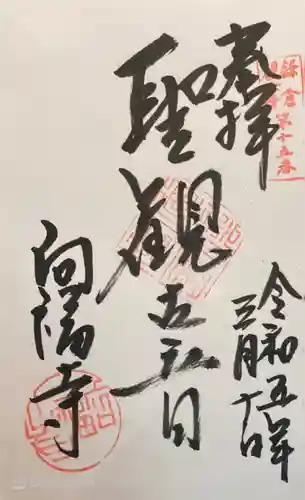 鎌倉第十五番
奉拝
聖観世音
令和五年
三月
向福寺